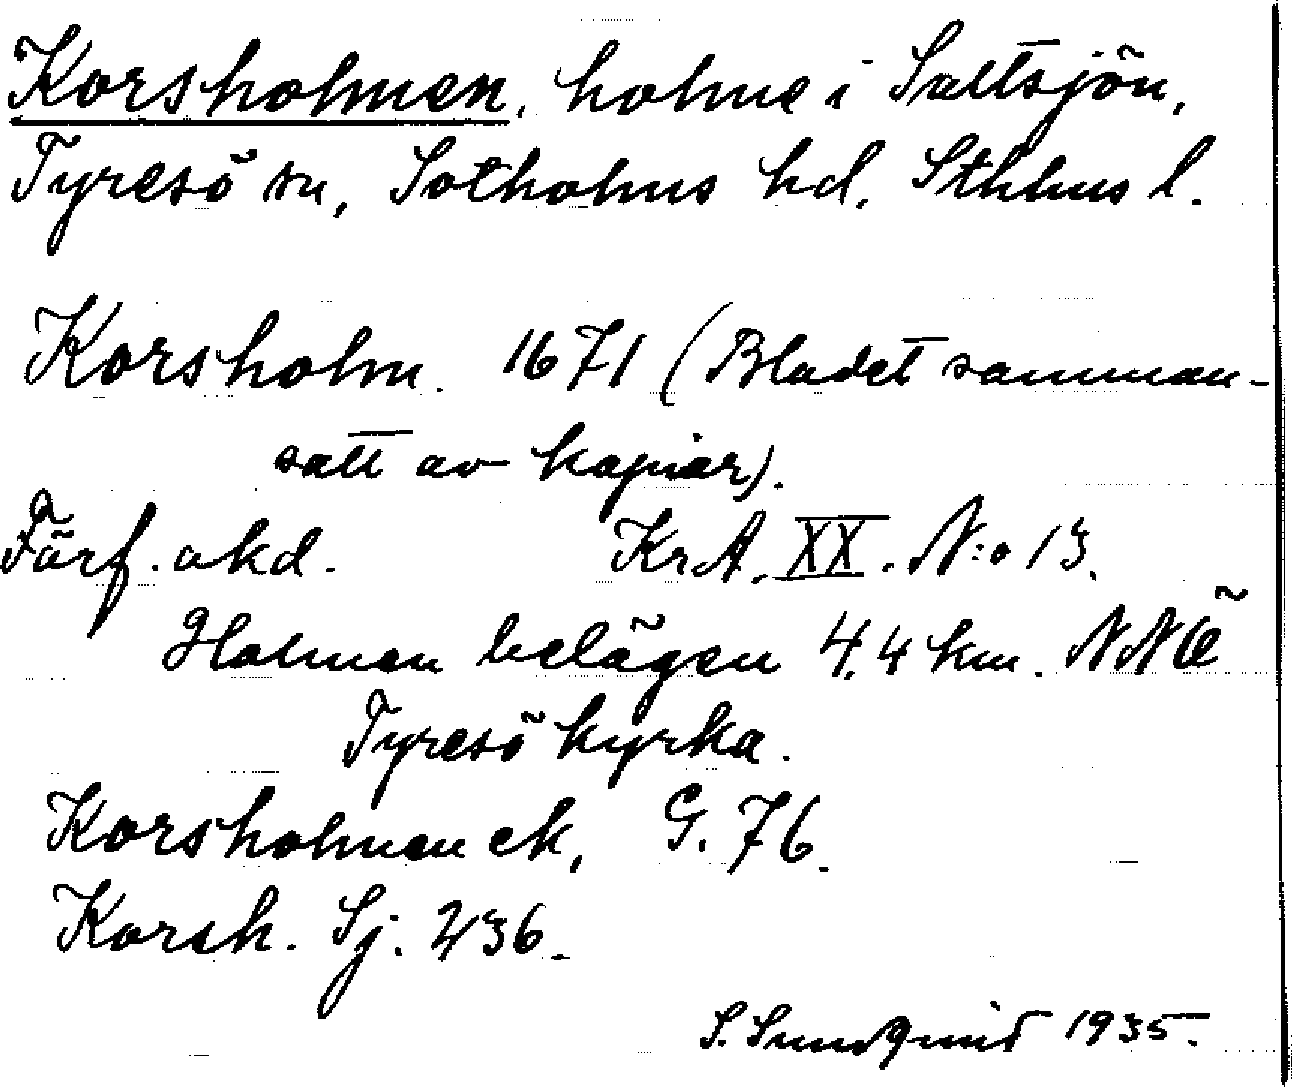 Korsholmen, holme i Saltsjön,
Tyresö sn, Sotholms hd, Sthlms l.
Korsholm. 1671 (Bladet samman-
satt av kopior).
Förf. okd. KrA. XX. N:o 13.
Holmen belägen 4,4 km. NNÖ
Tyresö kyrka.
Korsholmen ek, G. 76.
Korsh. Sj. 236.
S. Sundquist 1935.